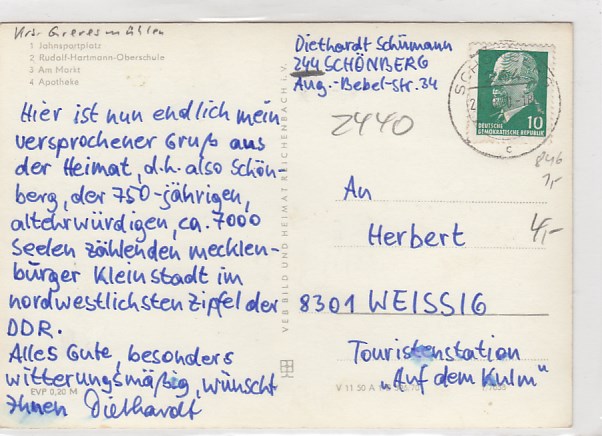 Krs. Grevesmühlen
1 Jahnsportplatz
2 Rudolf-Hartmann-Oberschule
3 Am Markt
4 Apotheke
Hier ist nun endlich mein
versprochener Gruß aus
der Heimat, d.h. also Schön-
berg, der 750-jährigen,
altehrwürdigen, ca. 7000
Seelen zählenden mecklen-
burger Kleinstadt im
nordwestlichsten Zipfel der
DDR.
Alles Gute, besonders
witterungsmäßig, wünscht
Ihnen Diethardt
EVP 0,20 M
VEB BILD UND HEIMAT REICHENBACH I. V.
Diethardt Schürmann
244 SCHÖNBERG
Aug.-Bebel-Str. 34
2440
10
DEUTSCHE
DEMOKRATISCHE REPUBLIK
c
846
1,-
4,-
An
Herbert
8301 WEISSIG
Touristenstation
"Auf dem Kulm"
V 11 50 A